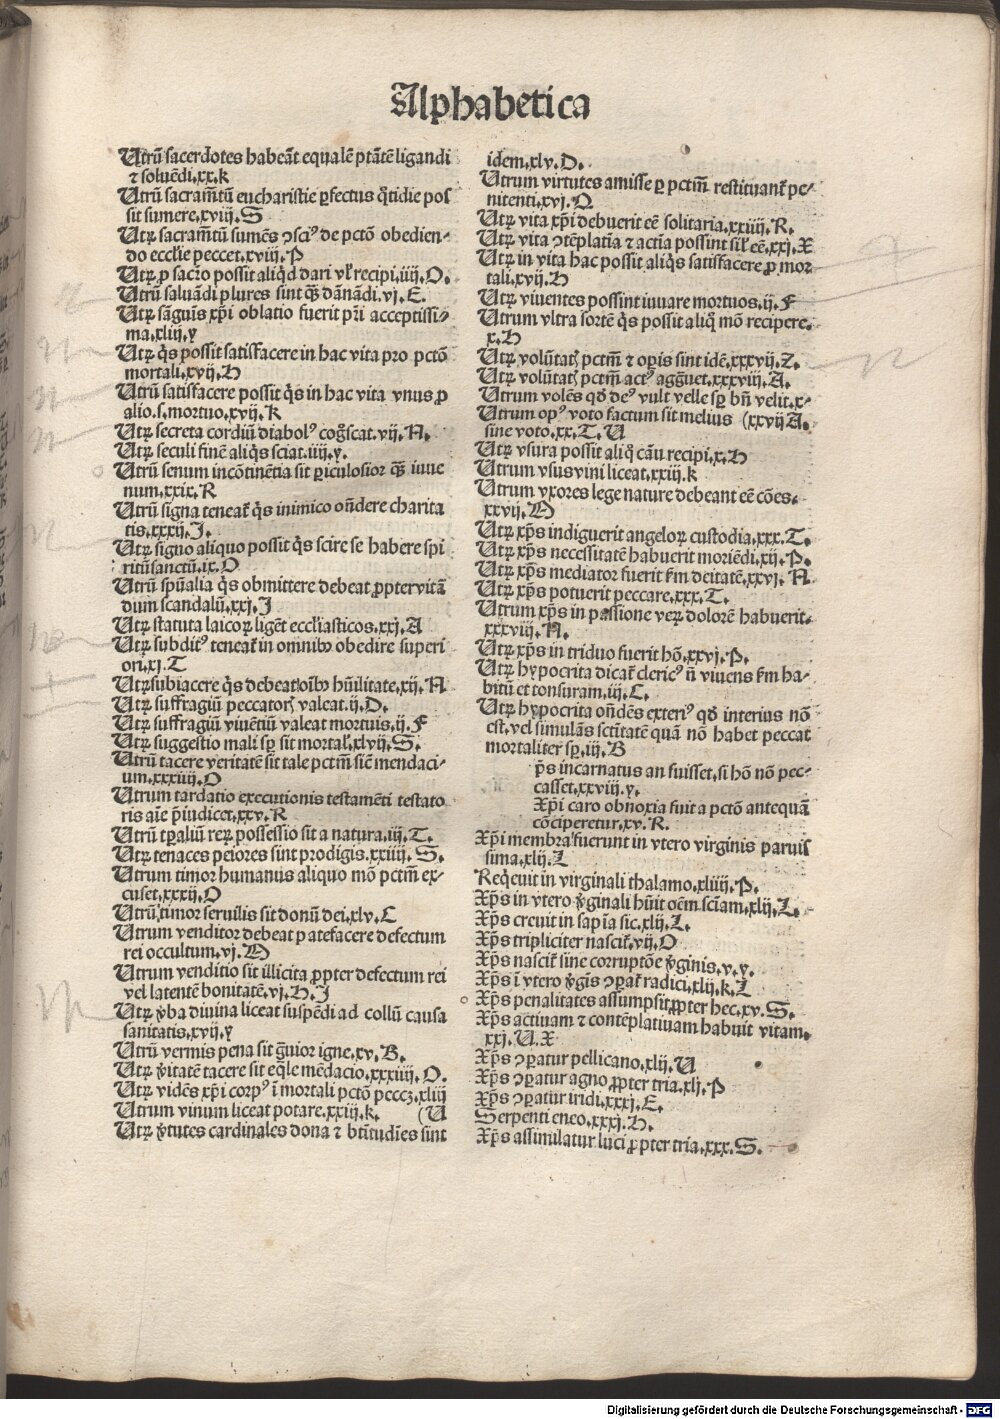 Alphabetica
Utrū sacerdotes habeāt equalē ptātē ligandi
⁊ soluēdi.xx.k
Utrū sacramētū eucharistie ꝑfectus q̄tidie pos
sit sumere.xviij.S
Utrꝝ sacramētū sumēs ꝯsciꝰ de pctō obedien-
do ecclie peccet.xviij.P
Utrꝝ ꝓ sacro possit aliqd dari vl' recipi.iiij.O.
Utrū saluādi plures sint q̄ȝ dānādi.vj.E.
Utrꝝ sāguīs xp̄i oblatio fuerit pr̄i acceptissi-
ma.xliij.y
Utrꝝ q̄s possit satisfacere in hac vita pro pctō
mortali.xvij.H
Utrū satisfacere possit q̄s in hac vita vnus ꝓ
alio.s.mortuo.xvij.K
Utrꝝ secreta cordiū diabolꝰ coḡscat.vij.N.
Utrꝝ seculi finē aliq̄s sciat.iiij.y.
Utrū senum incōtinētia sit ꝑiculosior q̄ȝ iuue
num.xxix.R
Utrū signa teneat̄ q̄s inimico on̄dere charita
tis.xxxij.J.
Utrꝝ signo aliquo possit q̄s scire se habere spi
ritū sanctū.ix.O
Utrū spūalia q̄s obmittere debeat ꝓpter vitā
dum scandalū.xxj.J
Utrꝝ statuta laicoꝝ ligēt eccl'iasticos.xxj.A
Utrꝝ subditꝰ teneat̄ in omnibꝰ obedire superi
ori.xj.T
Utrꝝ subiacere q̄s debeat oībꝰ hūilitate.xij.N
Utrꝝ suffragiū peccatorꝭ valeat.ij.D.
Utrꝝ suffragiū viuētiū valeat mortuis.ij.F
Utrꝝ suggestio mali sꝑ sit mortal'.xlvij.S.
Utrū tacere veritatē sit tale pctm̄ sic̄ mendaci-
um.xxxiiij.O
Utrum tardatio executionis testamēti testato
ris aīe p̄iudicet.xxv.R
Utrū tꝑaliū reꝝ possessio sit a natura.iij.T.
Utrꝝ tenaces peiores sint prodigis.xxiiij.S.
Utrum timor humanus aliquo mō pctm̄ ex-
cuset.xxxij.O
Utrū timor seruilis sit donū dei.xlv.C
Utrum venditor debeat patefacere defectum
rei occultum.vj.M
Utrum venditio sit illicita ꝓpter defectum rei
vel latentē bonitatē.vj.H.J
Utrꝝ v̄ba diuina liceat suspēdi ad collū causa
sanitatis.xvij.y
Utrū vermis pena sit ḡuior igne.xv.B.
Utrꝝ v̄itatē tacere sit eq̄le mēdacio.xxxiiij.O.
Utrꝝ vidēs xp̄i corpꝰ ī mortali pctō peccꝫ.xliij
Utrum vinum liceat potare.xxiij.k. (U
Utrꝝ v̄tutes cardinales dona ⁊ btītudīes sint
idem.xlv.D.
Utrum virtutes amisse ꝑ pctm̄ restituant̄ pe-
nitenti.xvj.Q
Utrꝝ vita xp̄i debuerit eē solitaria.xxiiij.R.
Utrꝝ vita ꝯtēplatīa ⁊ actīa possint sil' eē.xxj.X
Utrꝝ in vita hac possit aliq̄s satisfacere ꝓ mor
tali.xvij.H
Utrꝝ viuentes possint iuuare mortuos.ij.F
Utrum vltra sortē q̄s possit aliq̄ mō recipere.
x.H
Utrꝝ volūtatꝭ pctm̄ ⁊ oꝑis sint idē.xxxvij.Z.
Utrꝝ volūtatꝭ pctm̄ actꝰ agḡuet.xxxviij.A.
Utrum volēs qd̄ deꝰ vult velle sꝑ bn̄ velit.x-
Utrum opꝰ voto factum sit melius (xxvij A.
sine voto.xx.T.U
Utrꝝ vsura possit aliq̄ cāu recipi.x.H
Utrum vsus vini liceat.xxiij.k
Utrum vxores lege nature debeant eē cōes.
xxvij.M
Utrꝝ xp̄s indiguerit angeloꝝ custodia.xxx.T.
Utrꝝ xp̄s necessitatē habuerit moriēdi.xij.P.
Utrꝝ xp̄s mediator fuerit fm̄ deitatē.xxvj.N
Utrꝝ xp̄s potuerit peccare.xxx.T.
Utrum xp̄s in passione veꝝ dolorē habuerit.
xxxviij.N.
Utrꝝ xp̄s in triduo fuerit hō.xxvj.P.
Utrꝝ hypocrita dicat̄ clericꝰ n̄ viuens fm̄ ha-
bitū et tonsuram.iij.C.
Utrꝝ hypocrita on̄dēs exteriꝰ qd̄ interius nō
est.vel simulās sctītatē quā nō habet peccat
mortaliter sꝑ.iij.B
p̄s incarnatus an fuisset.si hō nō pec-
casset.xxviij.y.
Xp̄i caro obnoxia fuit a pctō antequā
cōciperetur.xv.R.
Xp̄i membra fuerunt in vtero virginis paruis
sima.xlij.L
Reqeuit in virginali thalamo.xliiij.P.
Xp̄s in vtero v̄ginali hūit oēm scīam.xlij.L.
Xp̄s creuit in sapīa sic.xlij.L.
Xp̄s tripliciter nascit̄.vij.O
Xp̄s nascit̄ sine corruptōe v̄ginis.v.y.
Xp̄s ī vtero v̄gīs ꝯꝑat̄ radici.xlij.k.L
Xp̄s penalitates assumpsit ꝓpter hec.xv.S.
Xp̄s actiuam ⁊ contēplatiuam habuit vitam.
xxj.U.X
Xp̄s ꝯꝑatur pellicano.xlij.U
Xp̄s ꝯꝑatur agno ꝓpter tria.xlj.P
Xp̄s ꝯꝑatur iridi.xxxj.E.
Serpenti eneo.xxxj.H.
Xp̄s assimilatur luci ꝓpter tria.xxx.S.
Digitalisierung gefördert durch die Deutsche Forschungsgemeinschaft - DFG